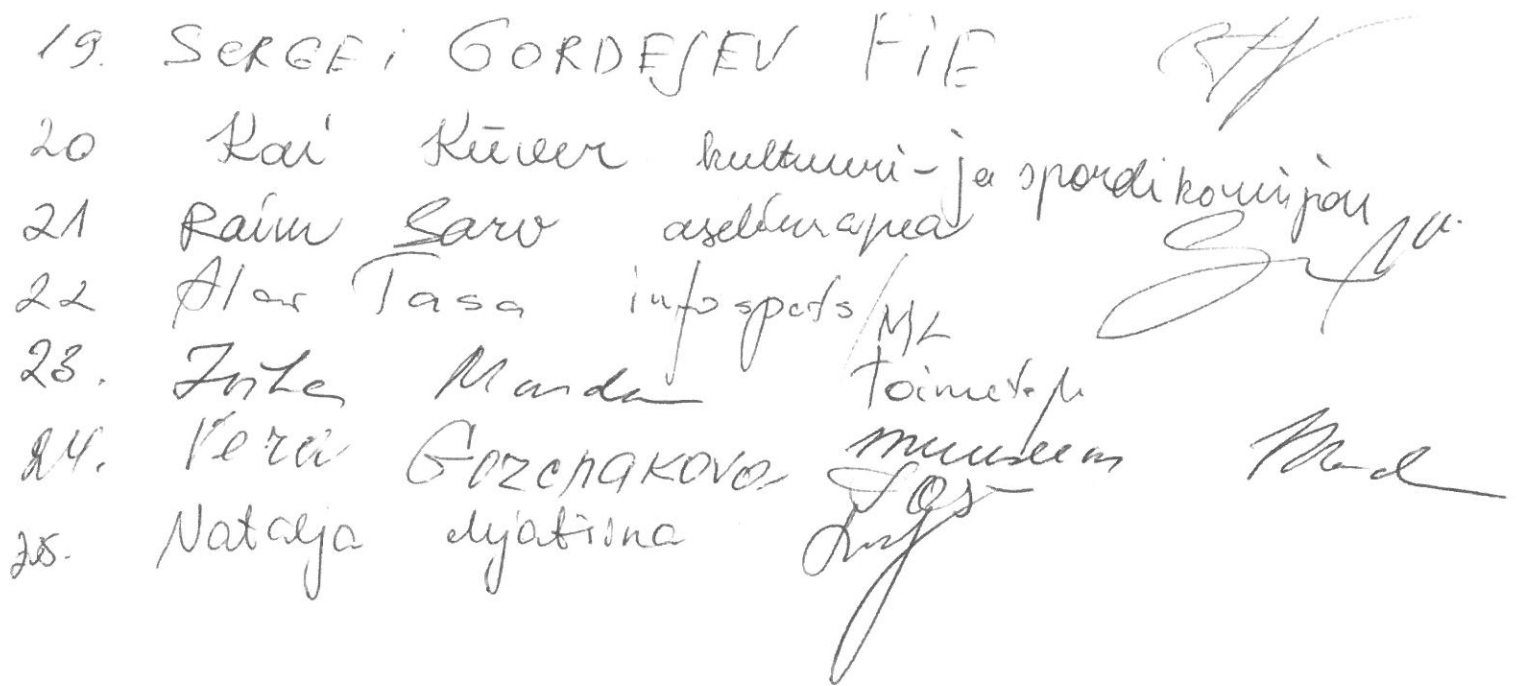 19. SERGEi GORDEJEV FiE
20 Kai Küver kultuuri- ja spordikomisjon
21 Raim Sarv aselinnapea
22 Alar Tasa infospets / ML
23. Marda toimetaja
24. Vera Gorchakova muuseum
25. Natalja